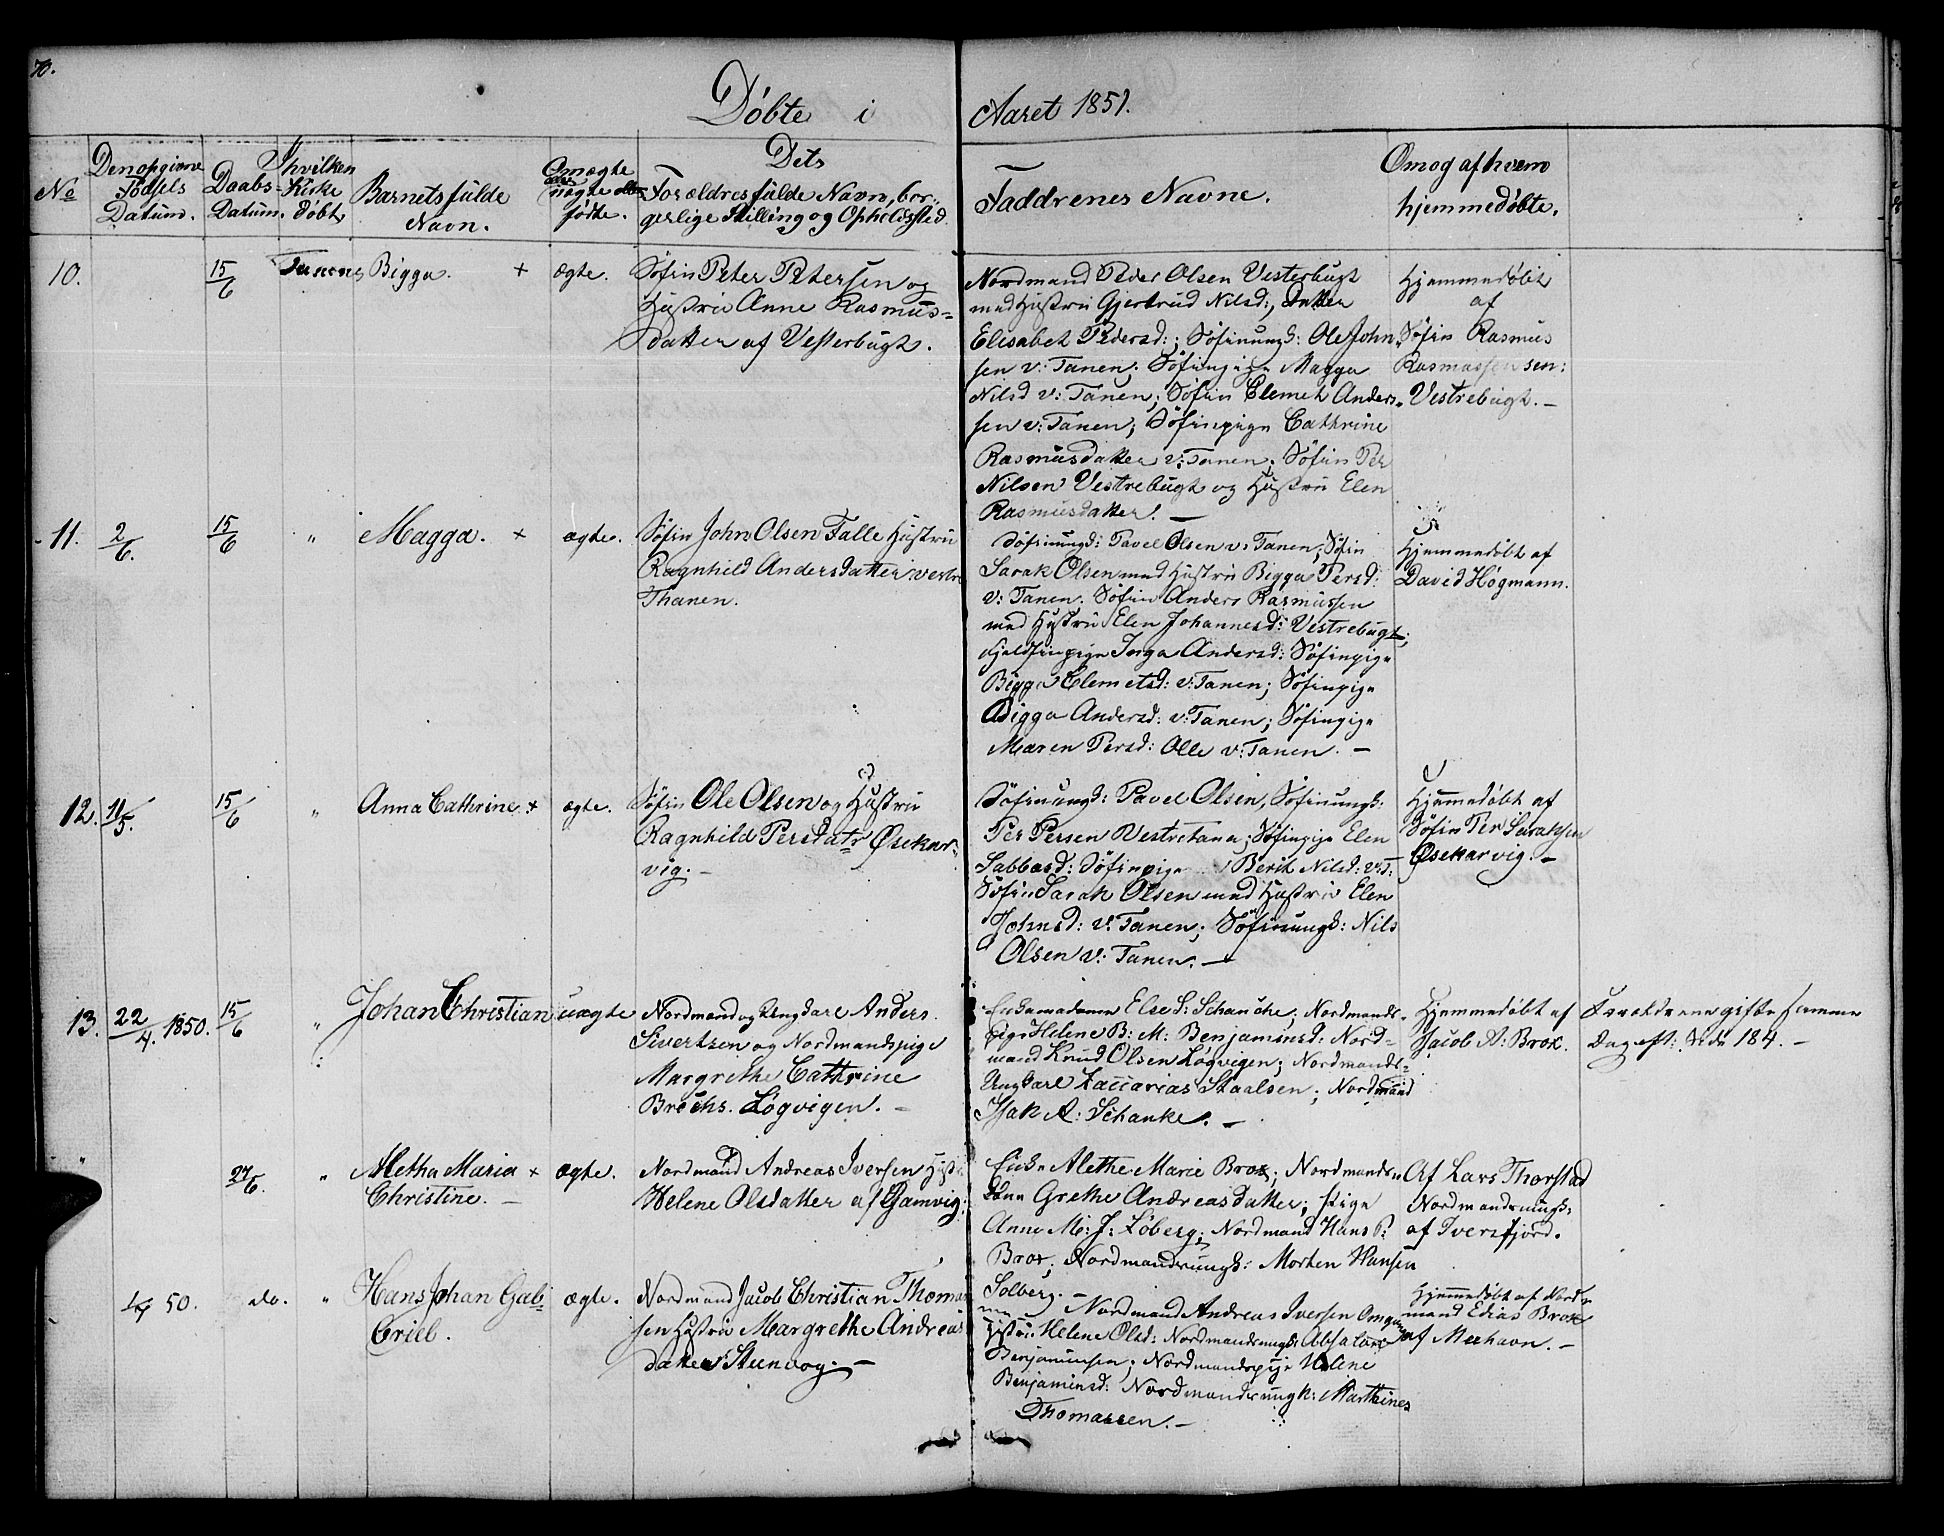 70.
Døbte i Aaret 1851.
No
Den opgivne Fødsels Datum.
Daabs-Datum.
I hvilken Kirke døbt
Barnets fulde Navn.
Om ægte eller uægte fødte.
Dets Forældres fulde Navn, borgerlige Stilling og Opholdssted.
Faddrenes Navne.
Om og af hvem hjemmedøbte.
10.
15/6
Tanens
Bigga. +
ægte.
Søfin Peter Petersen og
Hustru Anne Rasmus-
datter af Vesterbugt.
Nordmand Peder Olsen Vesterbugt
med Hustru Gjertrud Nilsd:, Datter
Elisabet Pedersd:; Søfinungk: Ole John
sen v: Tanen; Søfinpige Magga
Nilsd v: Tanen; Søfin Clemet Anders-
sen v: Tanen; Søfinpige Cathrine
Rasmusdatter v: Tanen; Søfin Per
Nilsen Vestrebugt og Hustru Elen
Rasmusdatter. —
Hjemmedøbt
af
Søfin Rasmus
Rasmussen sen:
Vestrebugt. —
11.
2/6.
15/6
"
Magga. +
ægte.
Søfin John Olsen Falle Hustru
Ragnhild Andersdatter vestre
Thanen.
Søfinungk: Pavel Olsen v: Tanen; Søfin
Sarak Olsen med Hustru Bigga Persd:
v: Tanen. Søfin Anders Rasmussen
med Hustru Elen Johannesd: Vestrebugt;
Fjeldfinpige Inga Andersd: Søfinpige
Bigga Clemetsd: v: Tanen; Søfinpige
Bigga Andersd: v: Tanen; Søfinpige
Maren Persd: Olle v: Tanen. —
Hjemmedøbt af
David Høgmann.
12.
11/5.
15/6
"
Anna Cathrine. +
ægte.
Søfin Ole Olsen og Hustru
Ragnhild Persdatr Øsekar-
vig. —
Søfinungk: Pavel Olsen, Søfinungk:
Per Persen Vestretana; Søfinpige Elen
Sabbasd: Søfinpige Berit Nilsd: v: T:
Søfin Sarak Olsen med Hustru Elen
Johnsd: v: Tanen; Søfinungk: Nils
Olsen v: Tanen. —
Hjemmedøbt af
Søfin Per Saraksen
Øsekarvig. —
13.
22/4. 1850.
15/6
"
Johan Christian
uægte
Nordmand og Ungkarl Anders
Sivertsen og Nordmandspige
Margrethe Cathrine
Brechs. Løgvigen. —
Enkemadame Else S: Schanche; Nordmands-
pige Helene B: M: Benjaminsd: Nord-
mand Knud Olsen Løgvigen; Nordmands-
Ungkarl Zaccarias Staalsen; Nordmand
Isak A: Schanke. —
Hjemmedøbt af
Jacob A: Brox.
Forældrene gifte samme
Dag eft: Side 184. —
27/6.
"
Aletha Maria +
Christine. —
ægte.
Nordmand Andreas Iversen Hustr
Helene Olsdatter af Gamvig;
Enke Alethe Marie Brox; Nordmands-
Grethe Andreasdatter; Pige
Anne M: J: Løberg; Nordmand Hans P:
Brox; Nordmandsungk: Morten Hansen
Solberg. —
Af Lars Thorstad
Nordmandsungk:
af Iversfjord.
50.
do.
"
Hans Johan Gab-
briel.
ægte.
Nordmand Jacob Christian Thomas
sen Hustru Margrethe Andreas
datter Steenvog. —
Nordmand Andreas Iversen Omgang
Hustru: Helene Olsd: Nordmandsungk: Absalon
Benjaminsen; Nordmandspige Helene
Benjaminsd: Nordmandsungk: Marthines
Thomassen. —
Hjemmedøbt af Nord-
mand Edias Brox
af Meehavn. —